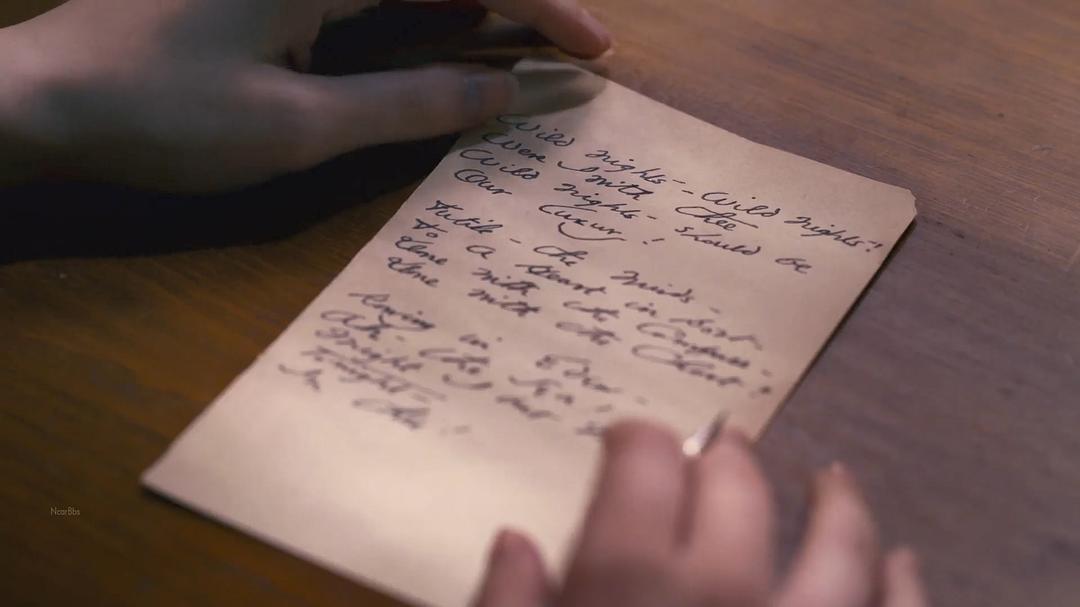 Wild nights -- Wild nights!
Were I with thee
Wild nights - should be
Our Luxury!
Futile - the winds -
To a Heart in port -
Done with the Compass -
Done with the Chart!
Rowing in Eden -
Ah - the Sea!
Might but
Tonight -
In thee!
NcarBbs